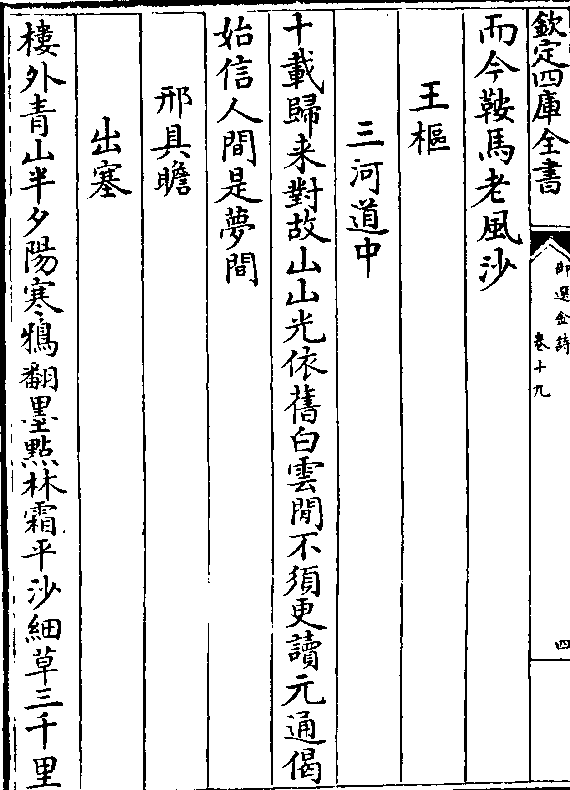 欽定四庫全書
御選金詩
卷十九
四
而今鞍馬老風沙
王樞
三河道中
十載歸来對故山山光依舊白雲閒不須更讀元通偈
始信人間是夢間
邢具瞻
出塞
樓外青山半夕陽寒鴉翻墨點林霜平沙細草三千里